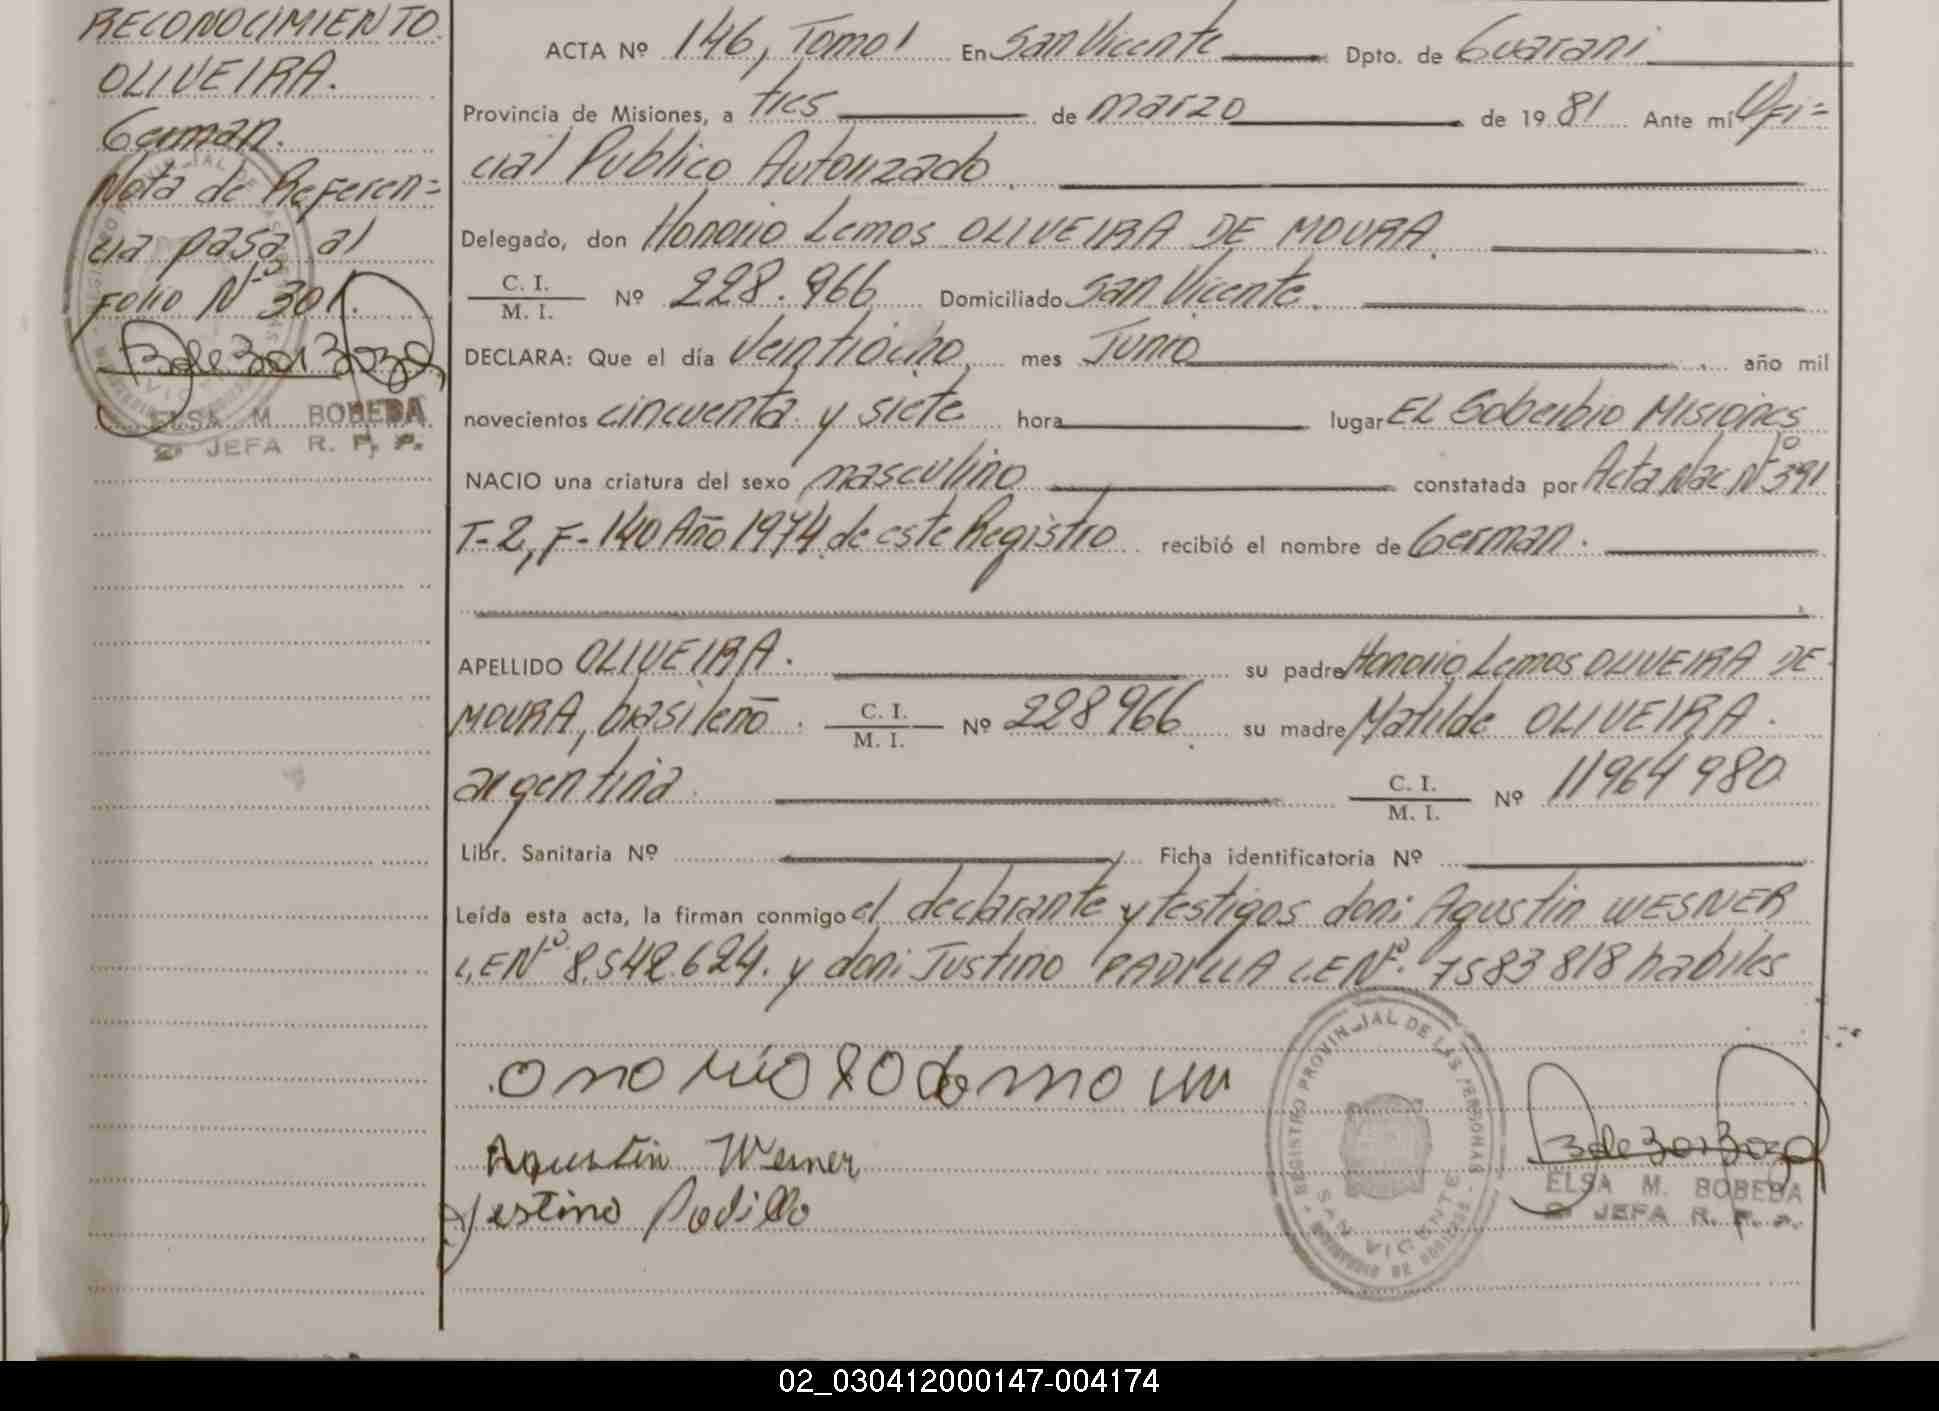 RECONOCIMIENTO.
OLIVEIRA.
German.
Nota de Referen=
cia pasa al
Folio Nº 301.
ELSA M. BOBEDA
JEFA R. P. P.
ACTA Nº 146, Tomo I En San Vicente Dpto. de Guarani
Provincia de Misiones, a tres de marzo de 1981 Ante mí Ofi=
cial Publico Autorizado
Delegado, don Honorio Lemos OLIVEIRA DE MOURA.
C. I.
M. I.
Nº 228.966 Domiciliado San Vicente.
DECLARA: Que el día Veintiocho mes Junio año mil
novecientos cincuenta y siete hora lugar EL Soberbio Misiones
NACIO una criatura del sexo masculino constatada por Acta Nac Nº 391
T-2, F-140 Año 1974 de este Registro recibió el nombre de German.
APELLIDO OLIVEIRA. su padre Honorio Lemos OLIVEIRA DE
MOURA, brasileño. C. I.
M. I.
Nº 228966 su madre Matilde OLIVEIRA.
argentina C. I.
M. I.
Nº 11964980
Libr. Sanitaria Nº Ficha identificatoria Nº
Leída esta acta, la firman conmigo el declarante y testigos don: Agustin WESNER
L.E Nº 8.542.624. y don: Justino PADILLA L.E Nº. 7583818 habiles
Agustin Wesner
Jestino Padillo
REGISTRO PROVINCIAL DE LAS PERSONAS
SAN VICENTE
MINISTERIO DE GOBIERNO
ELSA M. BOBEDA
JEFA R. P. P.
02_030412000147-004174